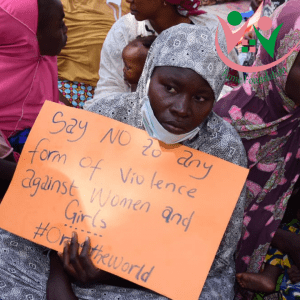 Say NO to any
form of Violence
against Women and
Girls